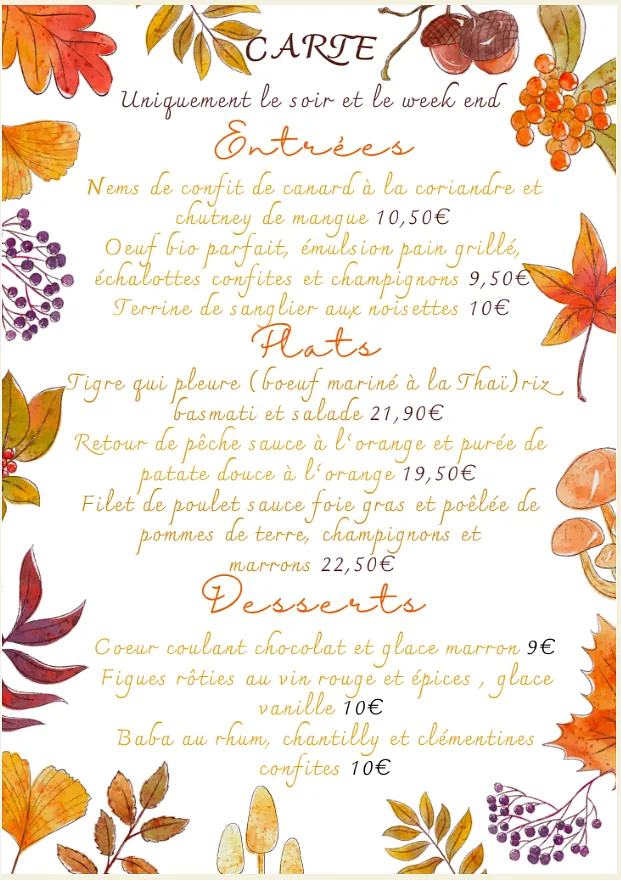 CARTE
Uniquement le soir et le week end
Entrées
Nems de confit de canard à la coriandre et
chutney de mangue 10,50€
Oeuf bio parfait, émulsion pain grillé,
échalottes confites et champignons 9,50€
Terrine de sanglier aux noisettes 10€
Plats
Tigre qui pleure (boeuf mariné à la Thaï)riz
basmati et salade 21,90€
Retour de pêche sauce à l'orange et purée de
patate douce à l'orange 19,50€
Filet de poulet sauce foie gras et poêlée de
pommes de terre, champignons et
marrons 22,50€
Desserts
Coeur coulant chocolat et glace marron 9€
Figues rôties au vin rouge et épices , glace
vanille 10€
Baba au rhum, chantilly et clémentines
confites 10€